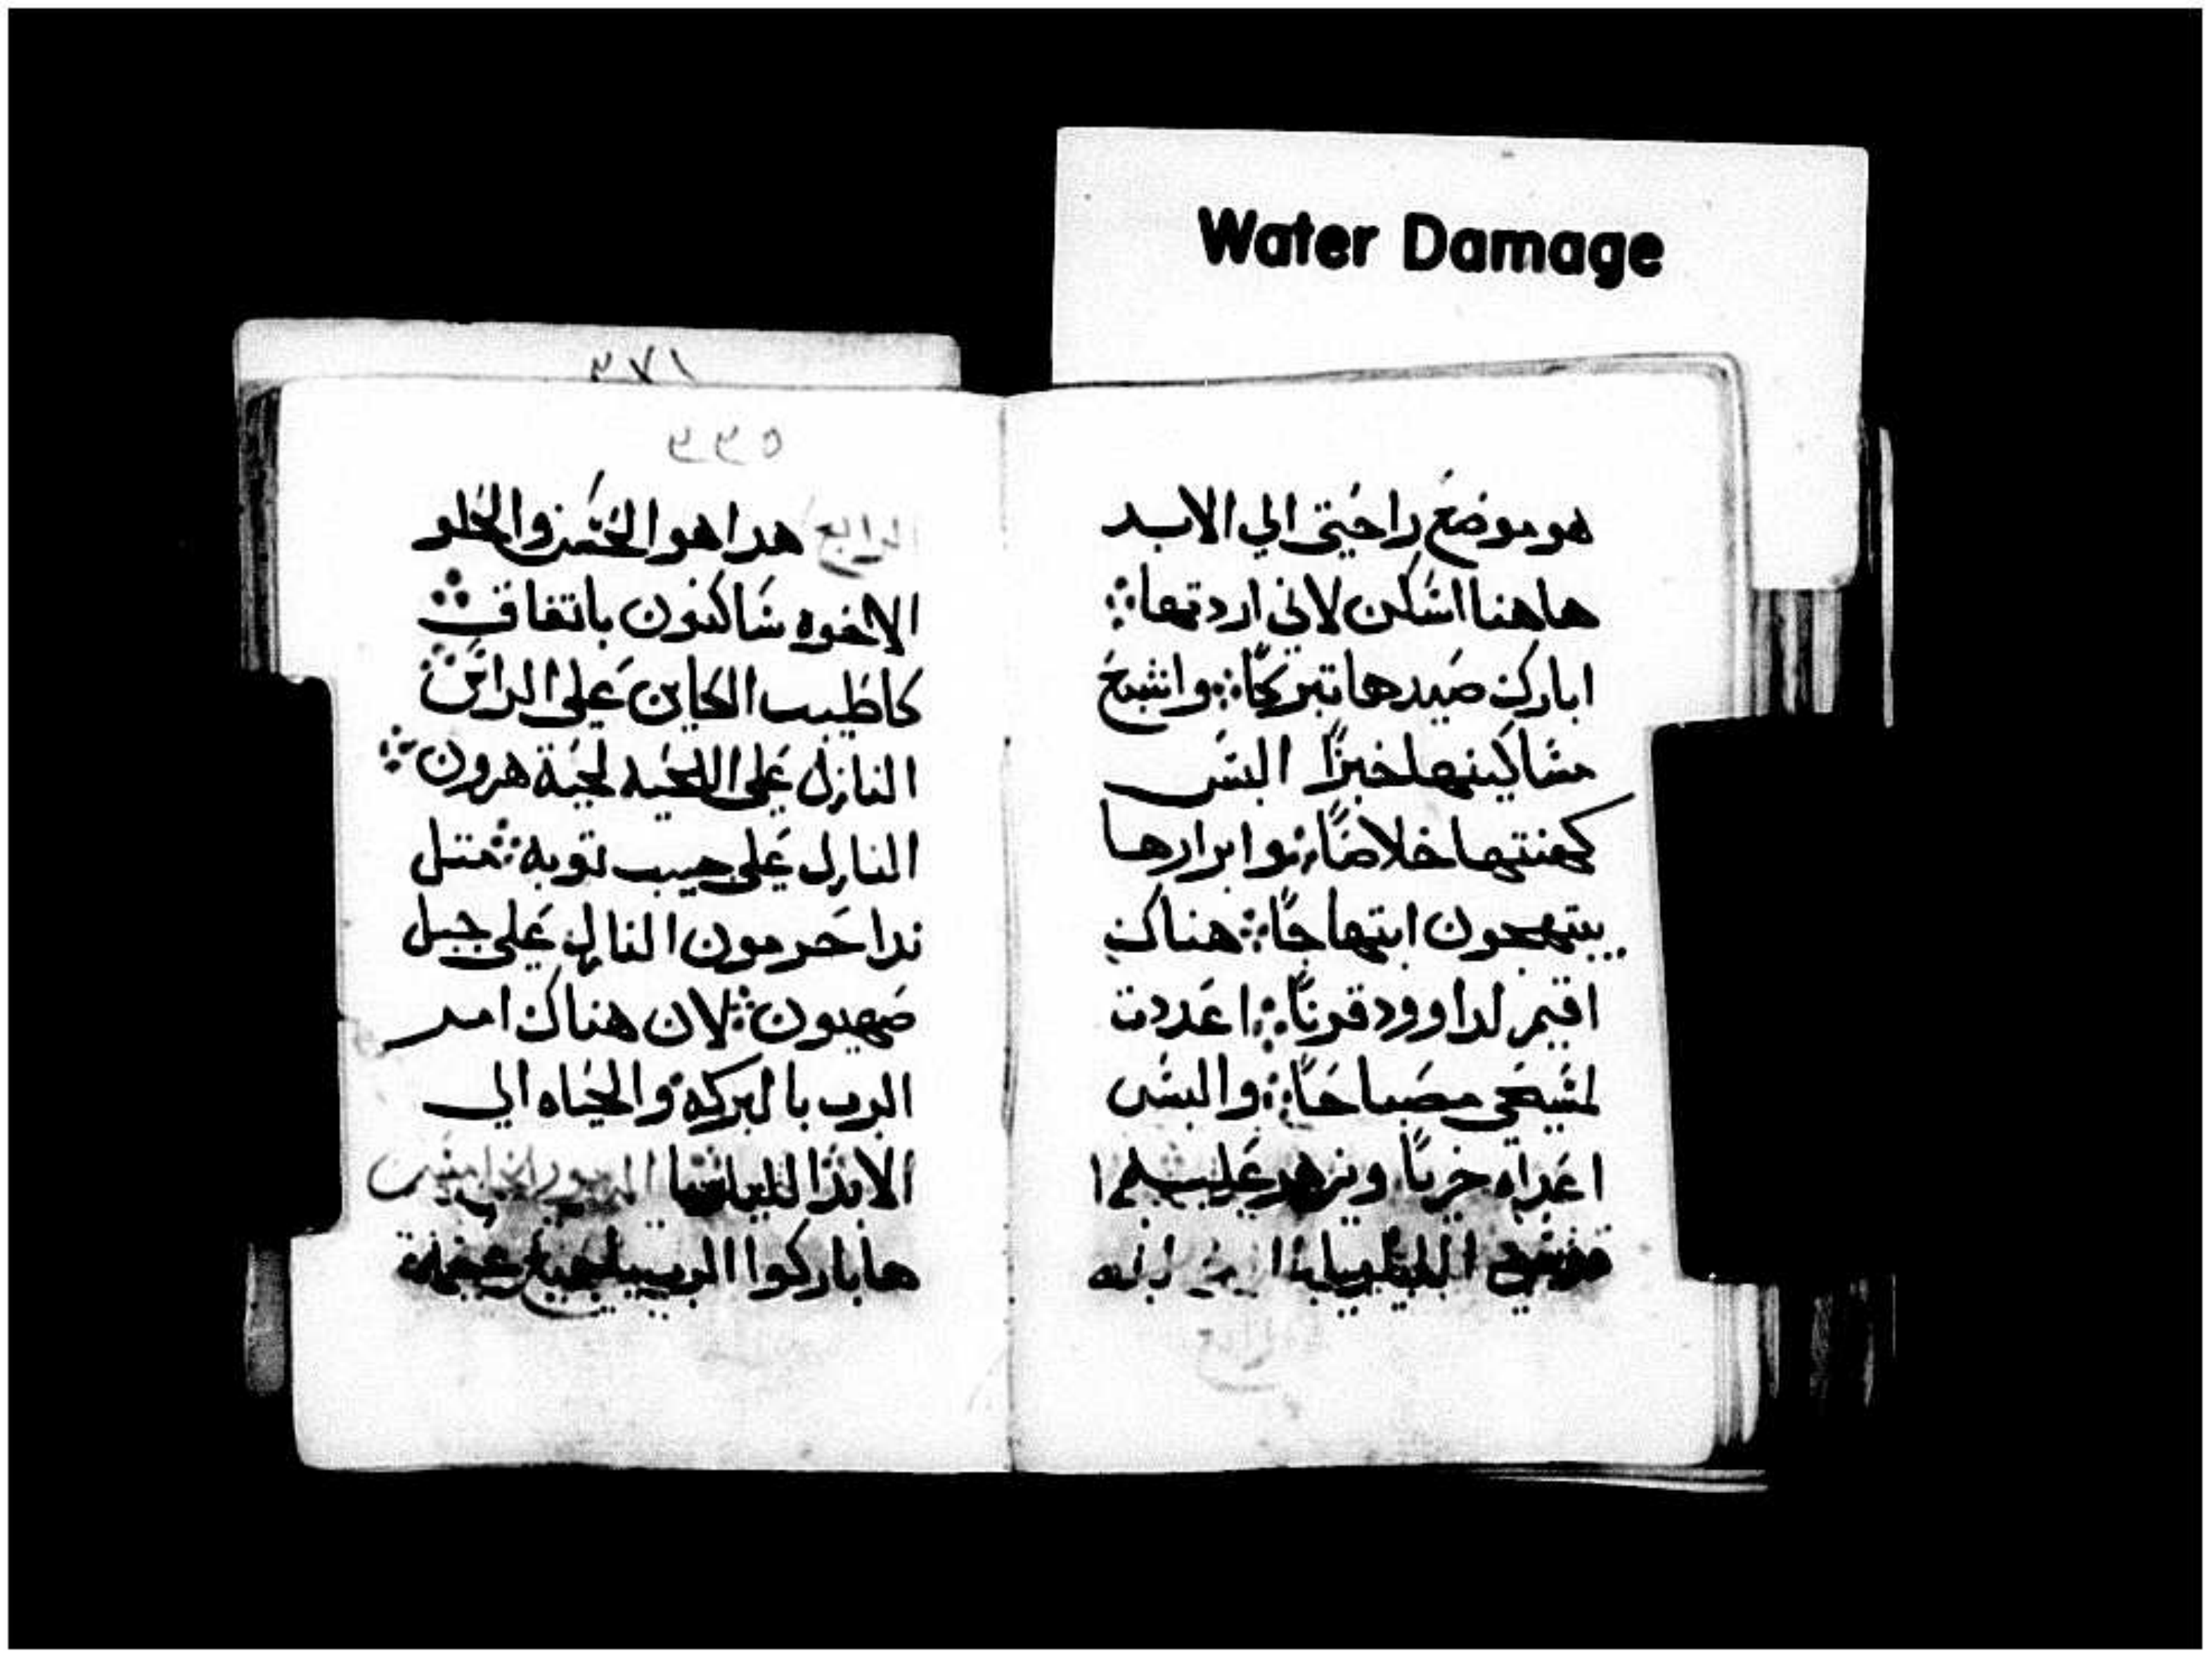 Water Damage
هو موضع راحتي الي الابد
هاهنا اسكن لاني اردتها
ابارك صيدها تبركًا واشبع
مساكينها خبزًا البس
كهنتها خلاصًا وابرارها
يبتهجون ابتهاجًا هناك
اقيم لداوود قرنًا اعددت
لمسيحي مصباحًا والبس
اعداه خزيًا ويزهر عليه
الليلويا
٣٧١
٣٣٥
الرابع هدا هو الحسن والحلو
الاخوه ساكنون باتفاق
كاطيب الكاين على الراس
النازل على اللحيه لحية هرون
النازل على جيب توبه متل
ندا حرمون النازل على جبل
صهيون لان هناك امر
الرب بالبركه والحياه الي
الابد الليلويا المزمور
ها باركوا الرب يا جميع